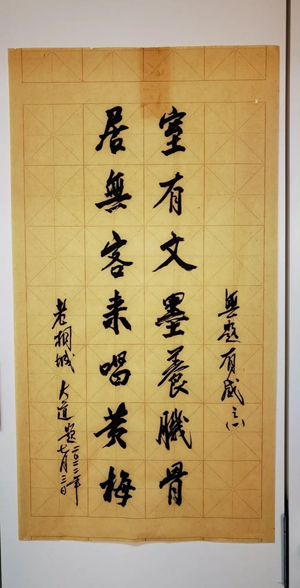 無題有感
室有文墨養骨
居無客来唱黄梅
老桐城 大道 题 二〇二二年
七月三日